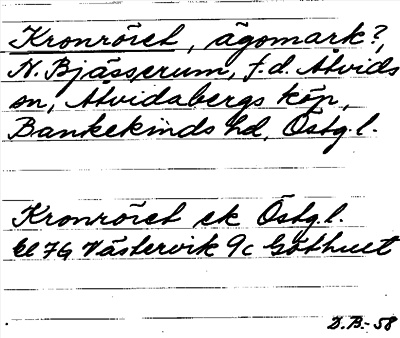 Kronröret, ägomark?,
N. Bjässerum, f.d. Åtvids
sn, Åtvidabergs köp,
Bankekinds hd, Östg.l.
Kronröret ek Östg.l.
bl 7G Västervik 9c Göthult
D.B.-58